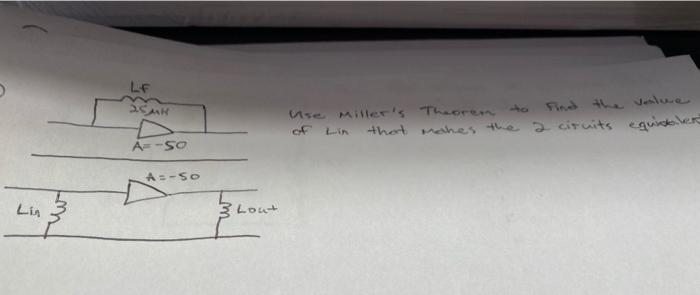 LF
25 µH
A=-50
Use Miller's Theorem to find the value
of Lin that makes the 2 ciruits equivalent
A=-50
Lin
Lout